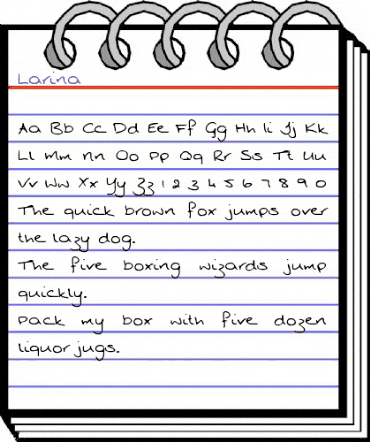 Larina
Aa Bb Cc Dd Ee Ff Gg Hh Ii Jj Kk
Ll Mm Nn Oo Pp Qq Rr Ss Tt Uu
Vv Ww Xx Yy Zz 1 2 3 4 5 6 7 8 9 0
The quick brown fox jumps over
the lazy dog.
The five boxing wizards jump
quickly.
Pack my box with five dozen
liquor jugs.